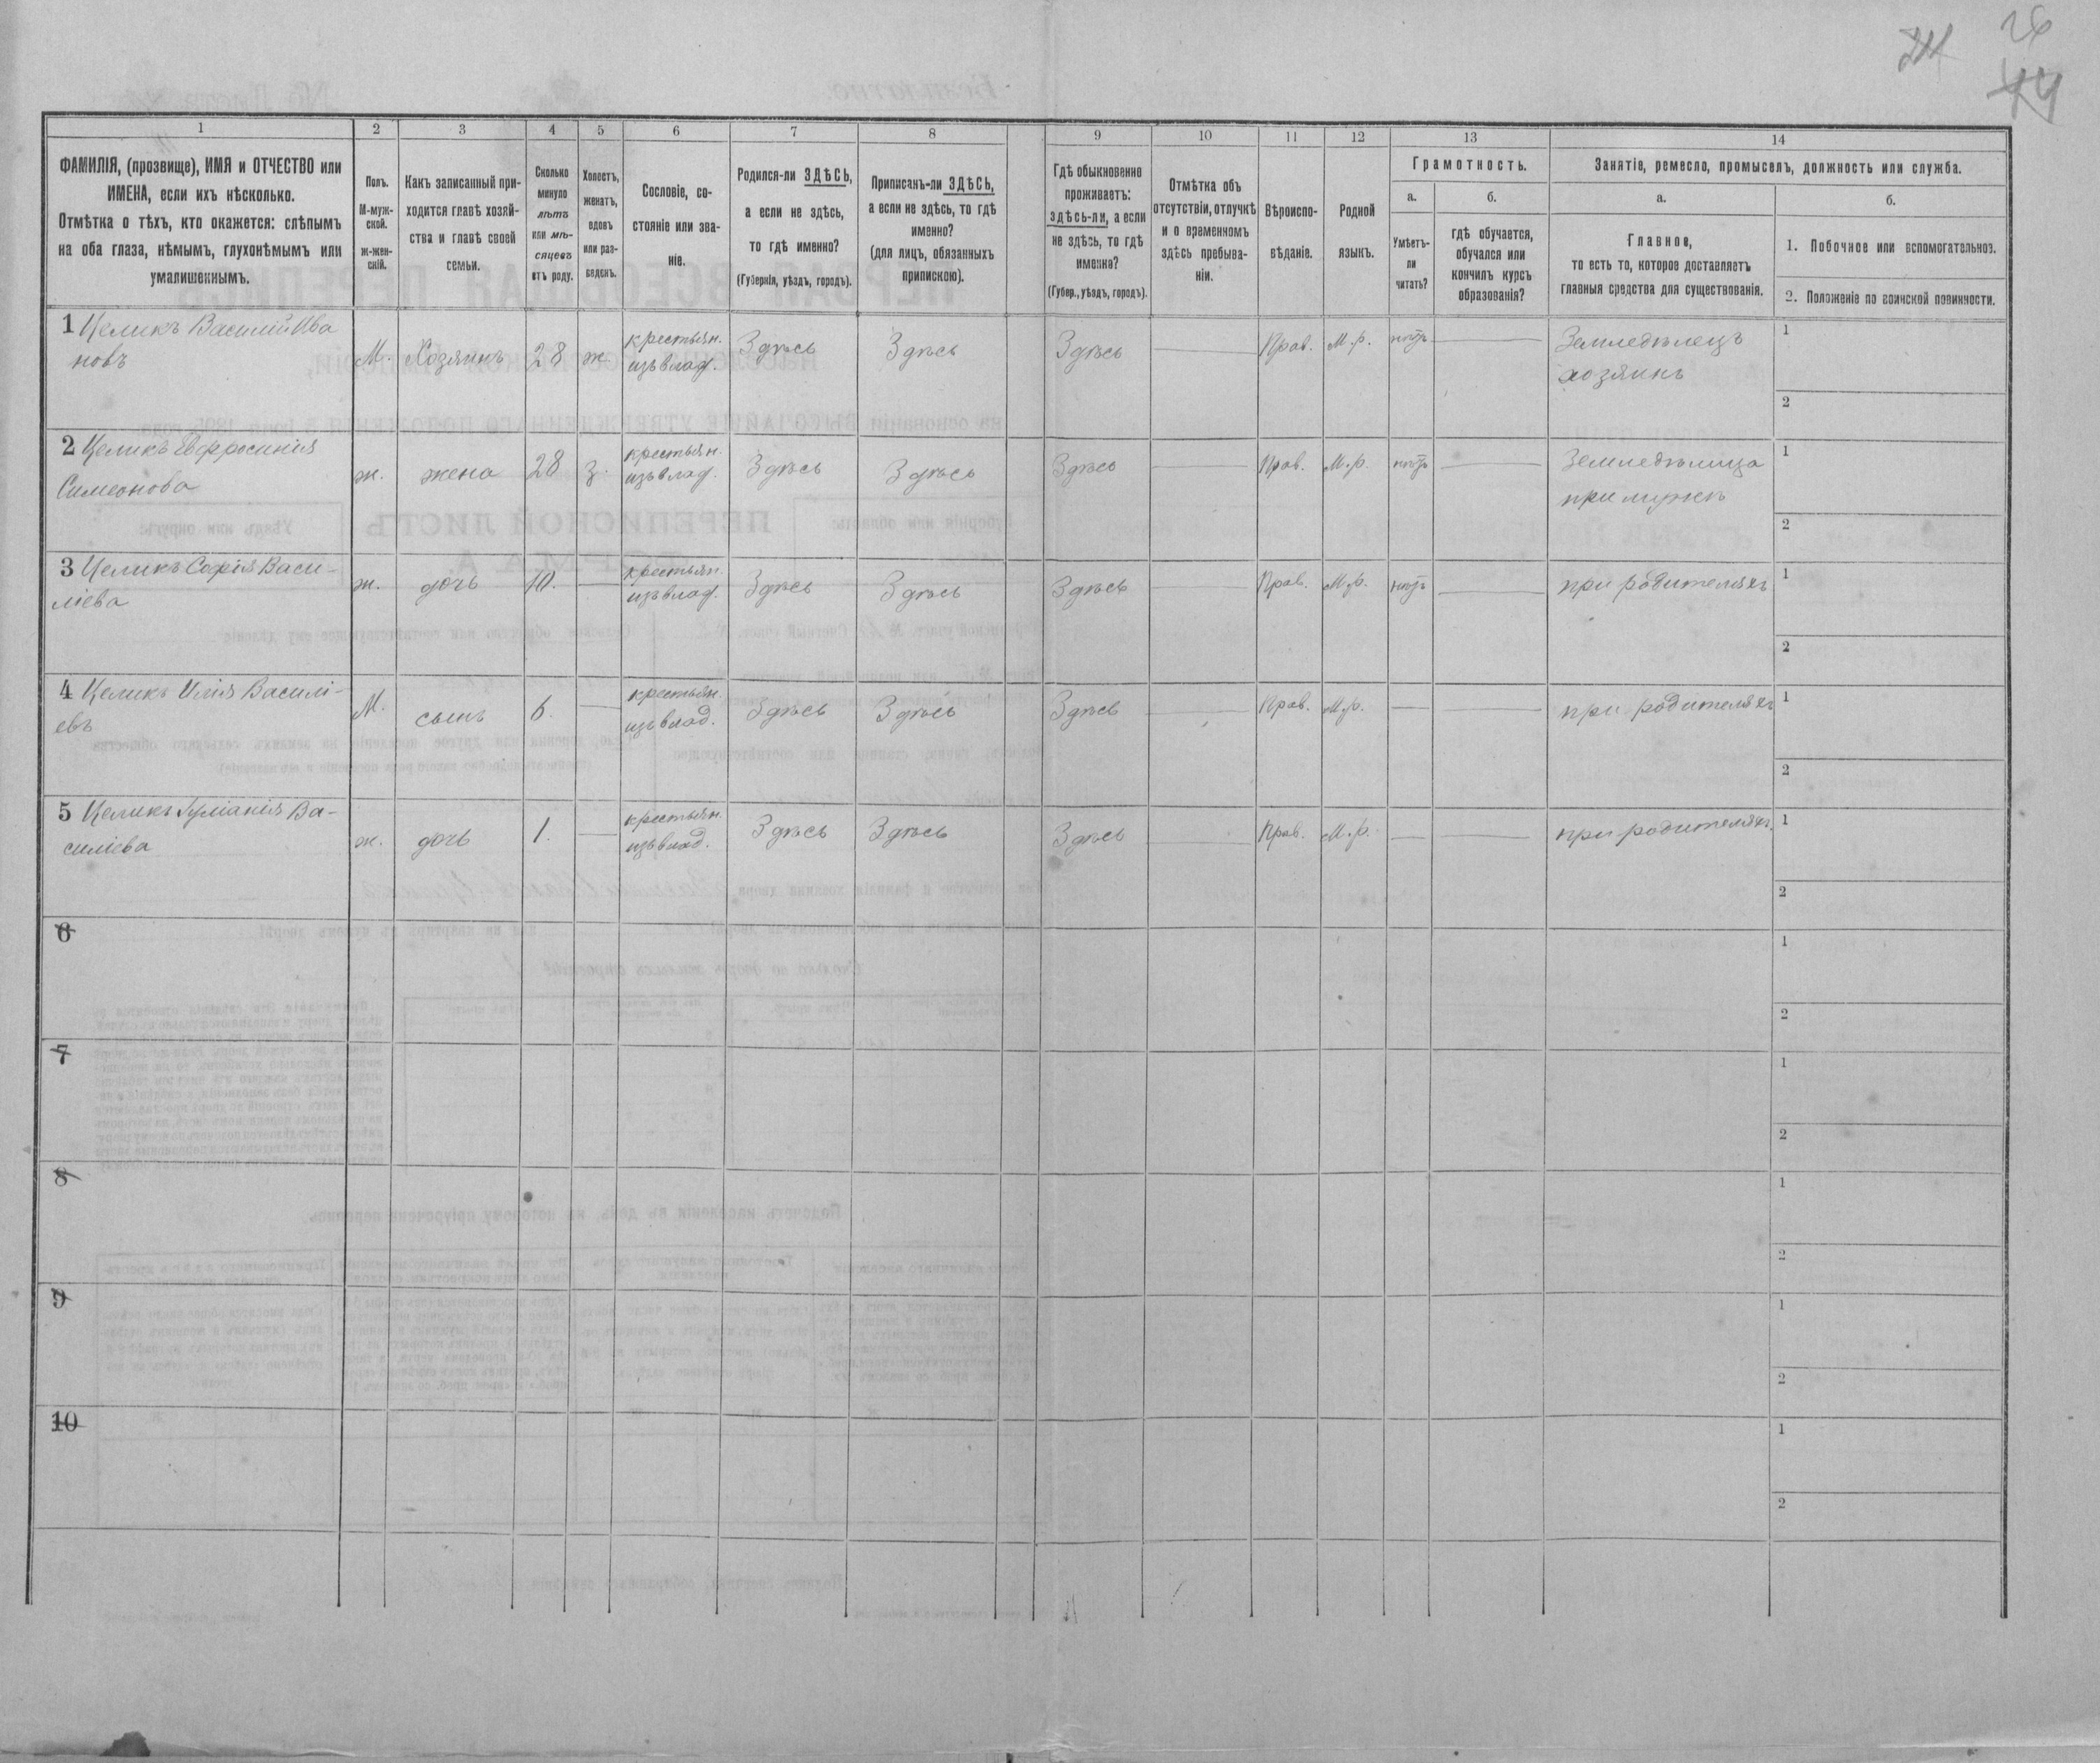 26
44
1 2 3 4 5 6 7 8 9 10 11 12 13 14
ФАМИЛІЯ, (прозвище), ИМЯ и ОТЧЕСТВО или
ИМЕНА, если ихъ нѣсколько.
Отмѣтка о тѣхъ, кто окажется: слѣпымъ
на оба глаза, нѣмымъ, глухонѣмымъ или
умалишеннымъ.
Полъ.
М-муж-
ской.
ж-жен-
скій.
Какъ записанный при-
ходится главѣ хозяй-
ства и главѣ своей
семьи.
Сколько
минуло
лѣтъ
или мѣ-
сяцевъ
отъ роду.
Холостъ,
женатъ,
вдовъ
или раз-
веденъ.
Сословіе, со-
стояніе или зва-
ніе.
Родился-ли ЗДѢСЬ,
а если не здѣсь,
то гдѣ именно?
(Губернія, уѣздъ, городъ).
Приписанъ-ли ЗДѢСЬ,
а если не здѣсь, то гдѣ
именно?
(для лицъ, обязанныхъ
припискою).
Гдѣ обыкновенно
проживаетъ:
здѣсь-ли, а если
не здѣсь, то гдѣ
именно?
(Губер., уѣздъ, городъ).
Отмѣтка объ
отсутствіи, отлучкѣ
и о временномъ
здѣсь пребыва-
ніи.
Вѣроиспо-
вѣданіе.
Родной
языкъ.
Грамотность.
а.
Умѣетъ-
ли
читать?
б.
гдѣ обучается,
обучался или
кончилъ курсъ
образованія?
Занятіе, ремесло, промыселъ, должность или служба.
а.
Главное,
то есть то, которое доставляетъ
главныя средства для существованія.
б.
1. Побочное или вспомогательное.
2. Положеніе по воинской повинности.
1 Целикъ Василій Ива
новъ
М. Хозяинъ 28 ж. крестьян.
изъ влад.
Здѣсь Здѣсь Здѣсь Прав. М.р. нѣтъ
Земледѣлецъ
хозяинъ
1
2
2 Целикъ Евфросинія
Симеонова
ж. жена 28 з. крестьян.
изъ влад.
Здѣсь Здѣсь Здѣсь Прав. М.р. нѣтъ
Земледѣлица
при мужѣ
1
2
3 Целикъ Софія Васи-
ліева
ж. дочь 10. крестьян.
изъ влад.
Здѣсь Здѣсь Здѣсь Прав. М.р. нѣтъ
при родителяхъ
1
2
4 Целикъ Илія Василі-
евъ
М. сынъ 6. крестьян.
изъ влад.
Здѣсь Здѣсь Здѣсь Прав. М.р.
при родителяхъ
1
2
5 Целикъ Іуліанія Ва-
силіева
ж. дочь 1. крестьян.
изъ влад.
Здѣсь Здѣсь Здѣсь Прав. М.р.
при родителях.
1
2
6
1
2
7
1
2
8
1
2
9
1
2
10
1
2